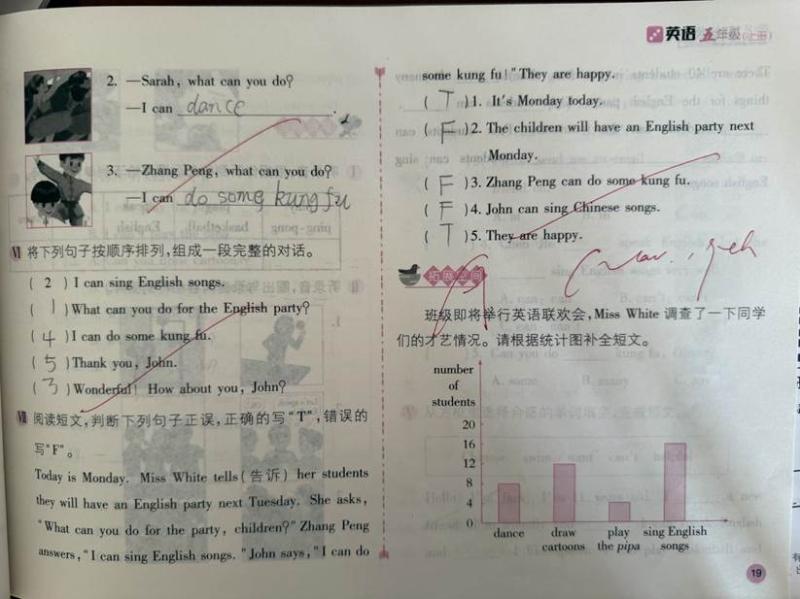 英语 五年级(上册)
2. —Sarah, what can you do?
—I can dance.
3. —Zhang Peng, what can you do?
—I can do some kung fu
Ⅵ 将下列句子按顺序排列,组成一段完整的对话。
( 2 ) I can sing English songs.
( 1 ) What can you do for the English party?
( 4 ) I can do some kung fu.
( 5 ) Thank you, John.
( 3 ) Wonderful! How about you, John?
Ⅶ 阅读短文,判断下列句子正误,正确的写“T”,错误的
写“F”。
Today is Monday. Miss White tells(告诉) her students
they will have an English party next Tuesday. She asks,
“What can you do for the party, children?” Zhang Peng
answers, “I can sing English songs. ”John says, “I can do
some kung fu!” They are happy.
( T )1. It's Monday today.
( F )2. The children will have an English party next
Monday.
( F )3. Zhang Peng can do some kung fu.
( F )4. John can sing Chinese songs.
( T )5. They are happy.
拓展空间
班级即将举行英语联欢会,Miss White 调查了一下同学
们的才艺情况。请根据统计图补全短文。
number
of
students
20
16
12
8
4
0
dance draw play sing English
cartoons the pipa songs
19